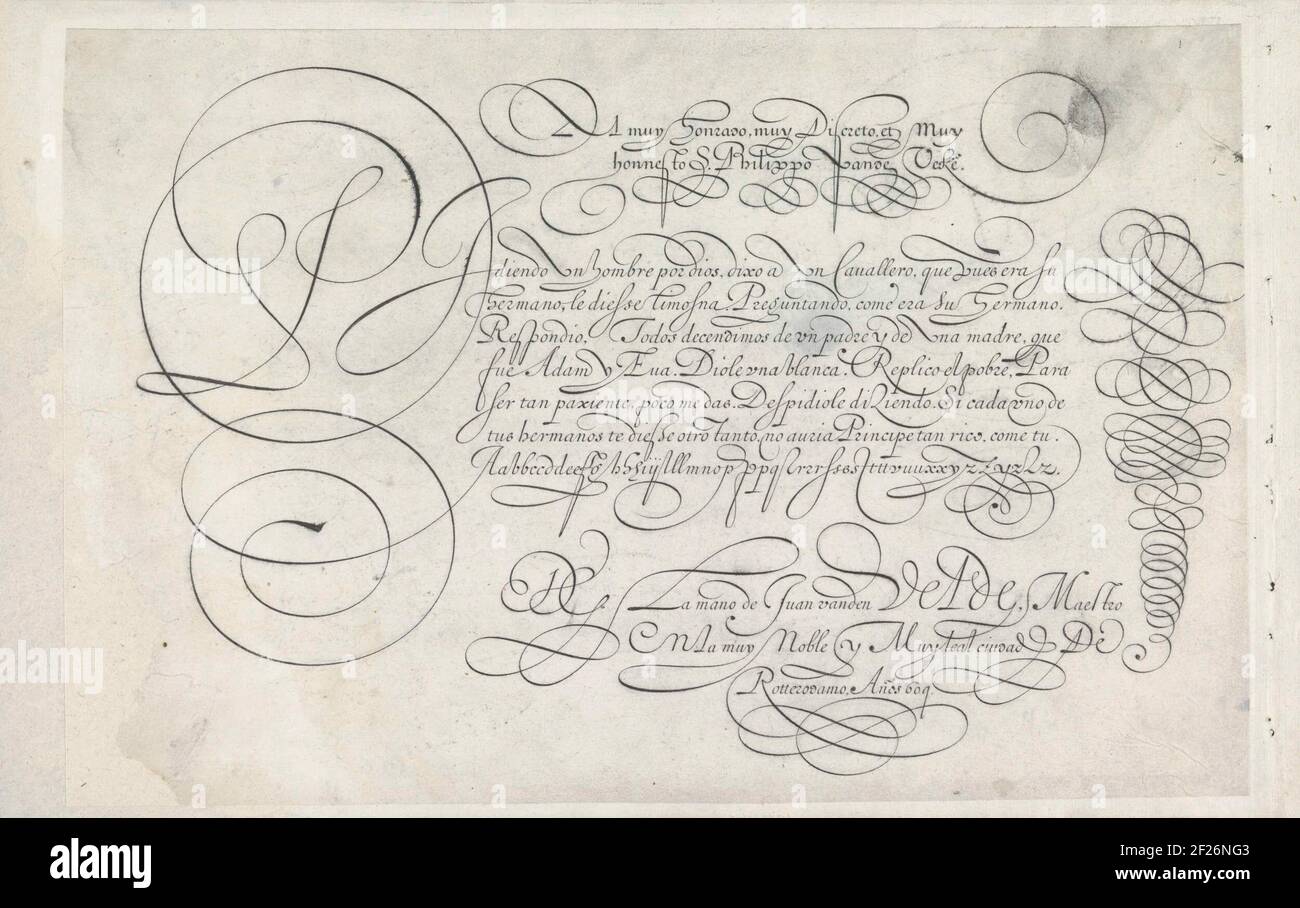 Al muy Honrado, muy Discreto, et Muy
honnesto S. Philippo Vande
PI
diendo Vn hombre por dios, dixo a Vn Cavallero, que pues era su
Hermano, le diesse limosna. Preguntando, come era su Hermano.
Respondio, Todos decendimos de vn padre y de Vna madre, que
fue Adam y Eua. Diole vna blanca. Replico el pobre, Para
ser tan paxiente, poco me das. Despidiole diziendo. Si cada vno de
tus hermanos te diesse otro tanto, no auria Principe tan rico, come tu.
De La mano de Juan vanden Velde, Maestro
En la muy Noble y Muy leal ciudad De
Rotterodamo, Años 609.
alamy
alamy
Image ID: 2F26NG3
www.alamy.com